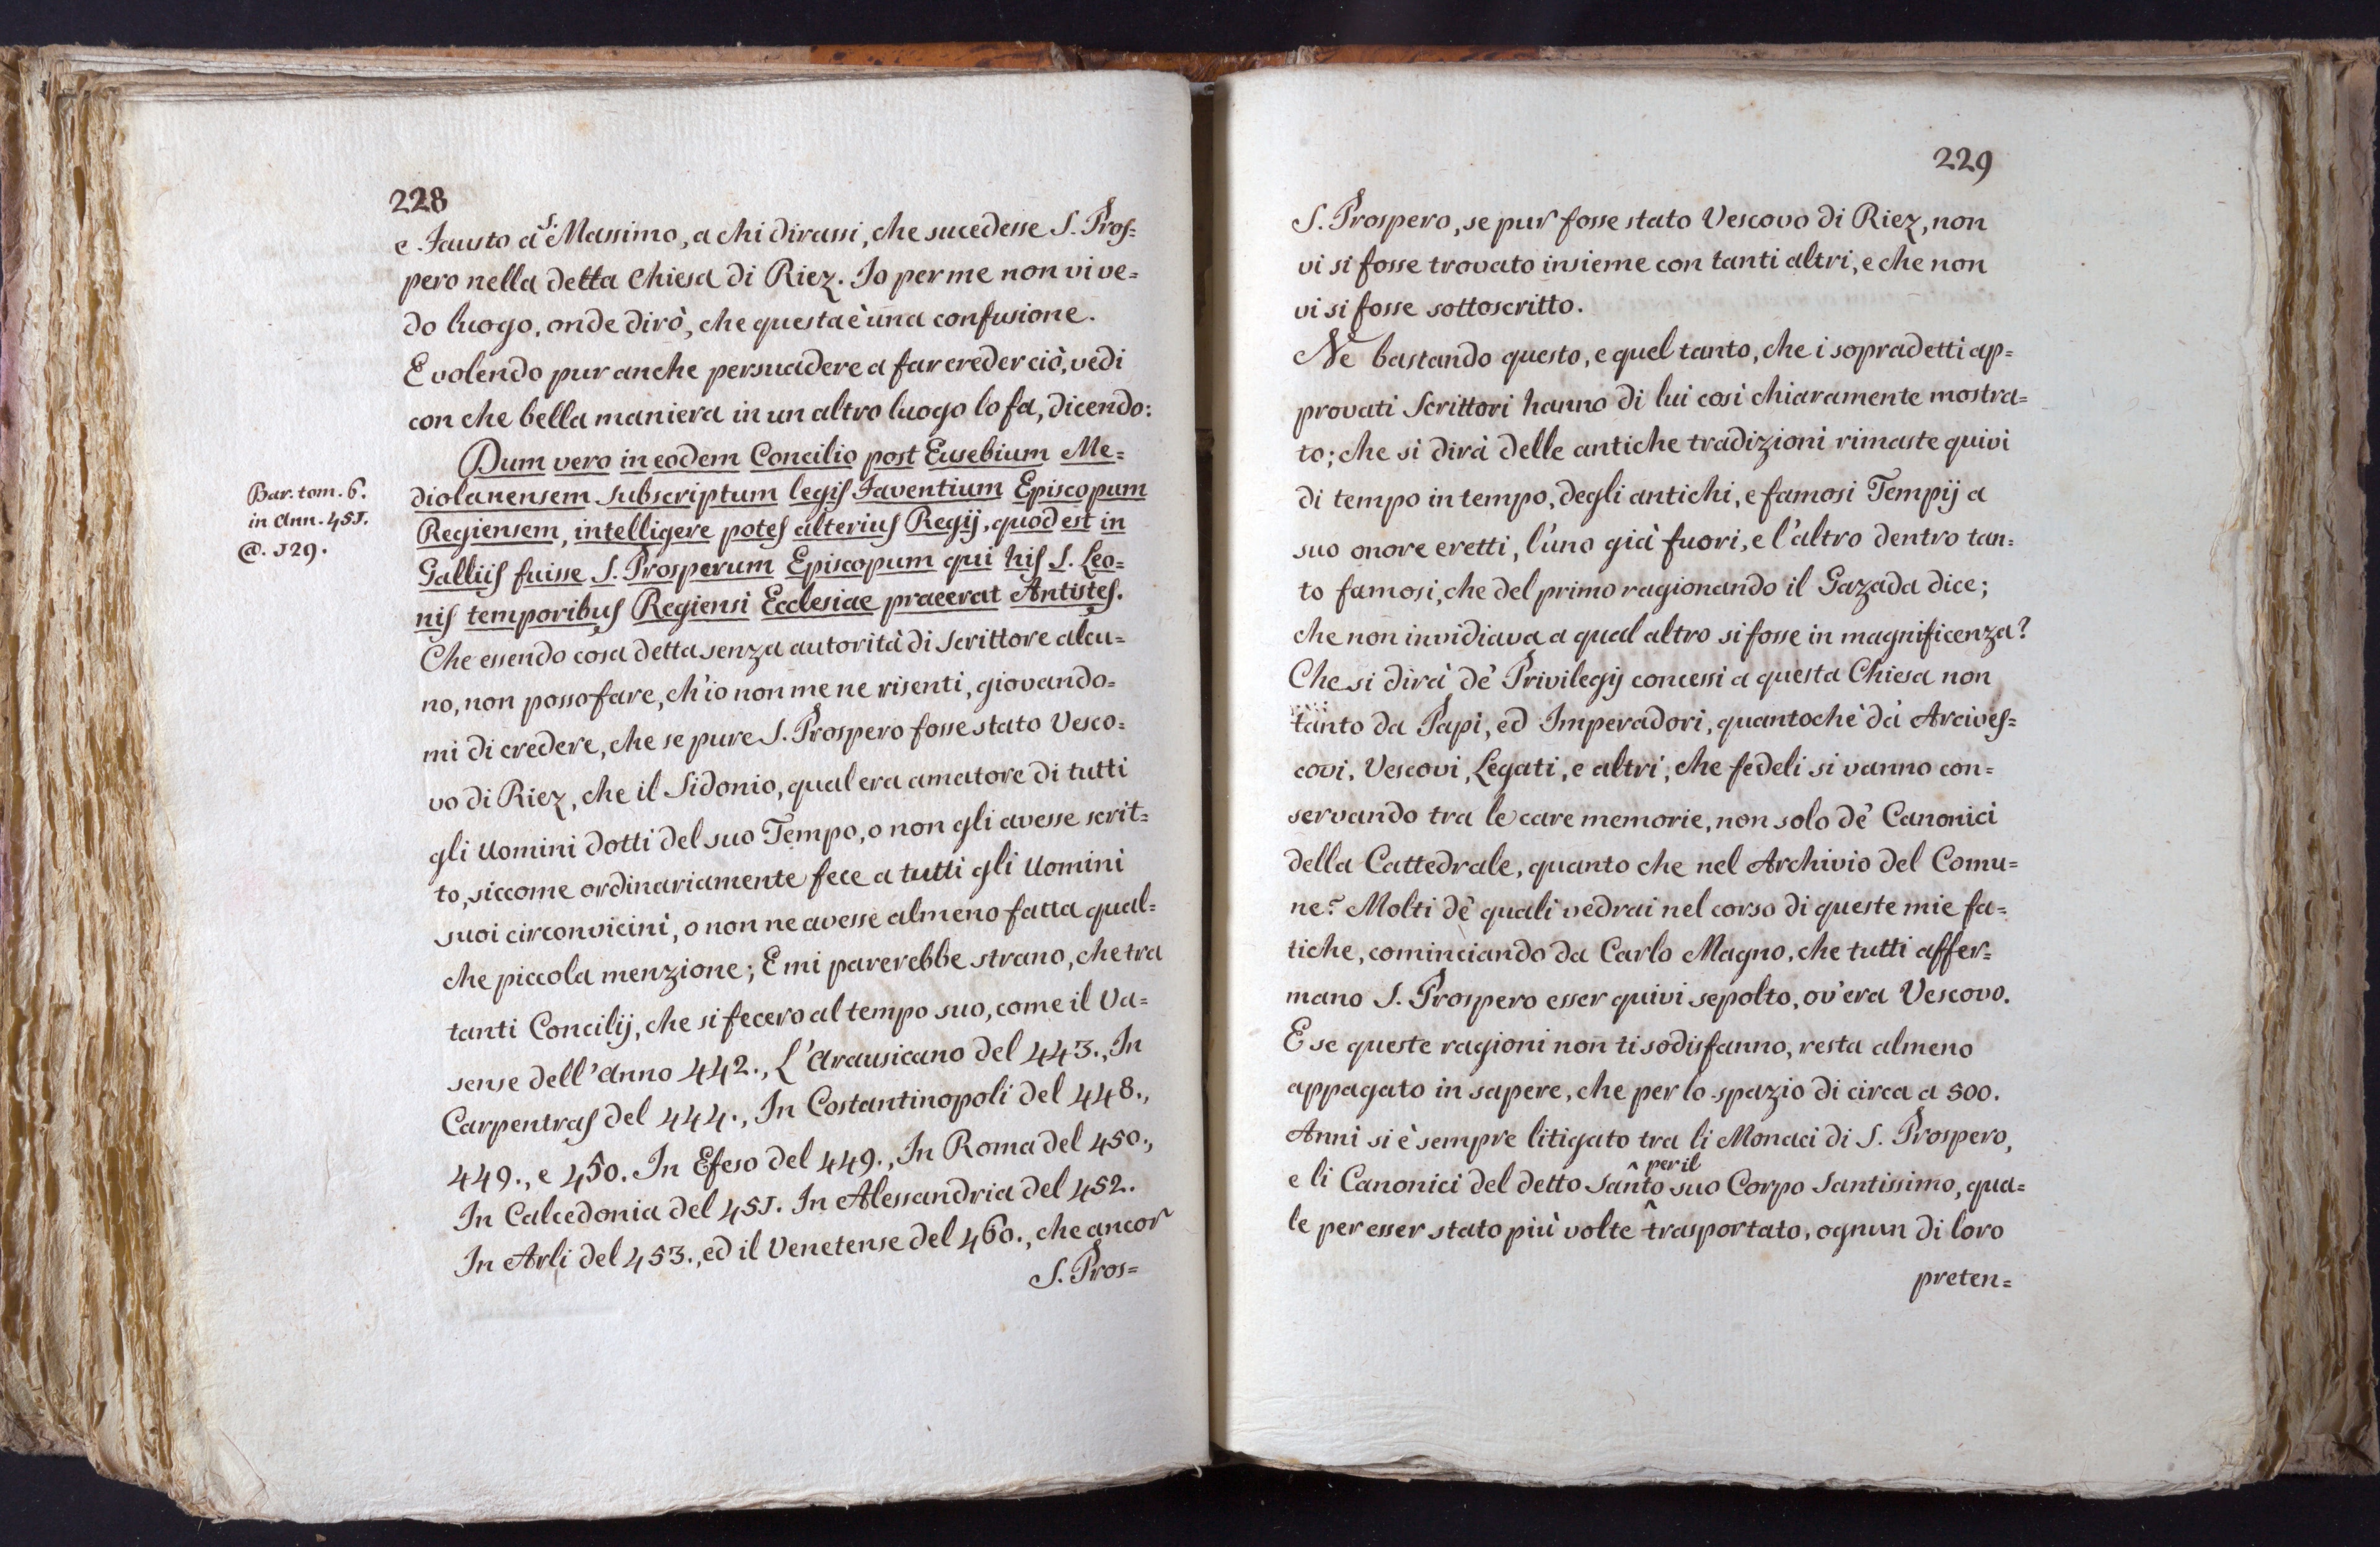 228
e Fausto a S. Massimo, a chi dirassi, che sucedesse S. Pros=
pero nella detta Chiesa di Riez. Io per me non vi ve=
do luogo, onde dirò, che questa è una confusione.
E volendo pur anche persuadere a far creder ciò, vedi
con che bella maniera in un altro luogo lo fa, dicendo:
Dum vero in eodem Concilio post Eusebium Me=
diolanensem subscriptum legis Faventium Episcopum
Regiensem, intelligere potes alterius Regij, quod est in
Galliis fuisse S. Prosperum Episcopum qui his S. Leo=
nis temporibus Regiensi Ecclesiae praeerat Antistes.
Bar. tom. 6.
in Ann. 451.
@. 129.
Che essendo cosa detta senza autorità di Scrittore alcu=
no, non posso fare, ch'io non me ne risenti, giovando=
mi di credere, che se pure S. Prospero fosse stato Vesco=
vo di Riez, che il Sidonio, qual era amatore di tutti
gli Uomini dotti del suo Tempo, o non gli avesse scrit=
to, siccome ordinariamente fece a tutti gli Uomini
suoi circonvicini, o non ne avesse almeno fatta qual=
che piccola menzione; E mi parerebbe strano, che tra
tanti Concilij, che si fecero al tempo suo, come il Va=
sense dell'Anno 442., L'Arausicano del 443., In
Carpentras del 444., In Costantinopoli del 448.,
449., e 450. In Efeso del 449., In Roma del 450.,
In Calcedonia del 451. In Alessandria del 452.
In Arli del 453., ed il Venetense del 460., che ancor
S. Pros=
229
S. Prospero, se pur fosse stato Vescovo di Riez, non
vi si fosse trovato insieme con tanti altri, e che non
vi si fosse sottoscritto.
Ne bastando questo, e quel tanto, che i sopradetti ap=
provati Scrittori hanno di lui così chiaramente mostra=
to; che si dirà delle antiche tradizioni rimaste quivi
di tempo in tempo, degli antichi, e famosi Tempij a
suo onore eretti, l'uno già fuori, e l'altro dentro tan=
to famosi, che del primo ragionando il Gazada dice;
che non invidiava a qual altro si fosse in magnificenza?
Che si dirà de' Privilegij concessi a questa Chiesa non
tanto da Papi, ed Imperadori, quantochè da' Arcives=
covi, Vescovi, Legati, e altri, che fedeli si vanno con=
servando tra le care memorie, non solo de' Canonici
della Cattedrale, quanto che nel Archivio del Comu=
ne? Molti de' quali vedrai nel corso di queste mie fa=
tiche, cominciando da Carlo Magno, che tutti affer=
mano S. Prospero esser quivi sepolto, ov'era Vescovo.
E se queste ragioni non ti sodisfanno, resta almeno
appagato in sapere, che per lo spazio di circa a 500.
Anni si è sempre litigato tra li Monaci di S. Prospero,
e li Canonici del detto Santo ^ per il suo Corpo Santissimo, qua=
le per esser stato più volte trasportato, ognun di loro
preten=